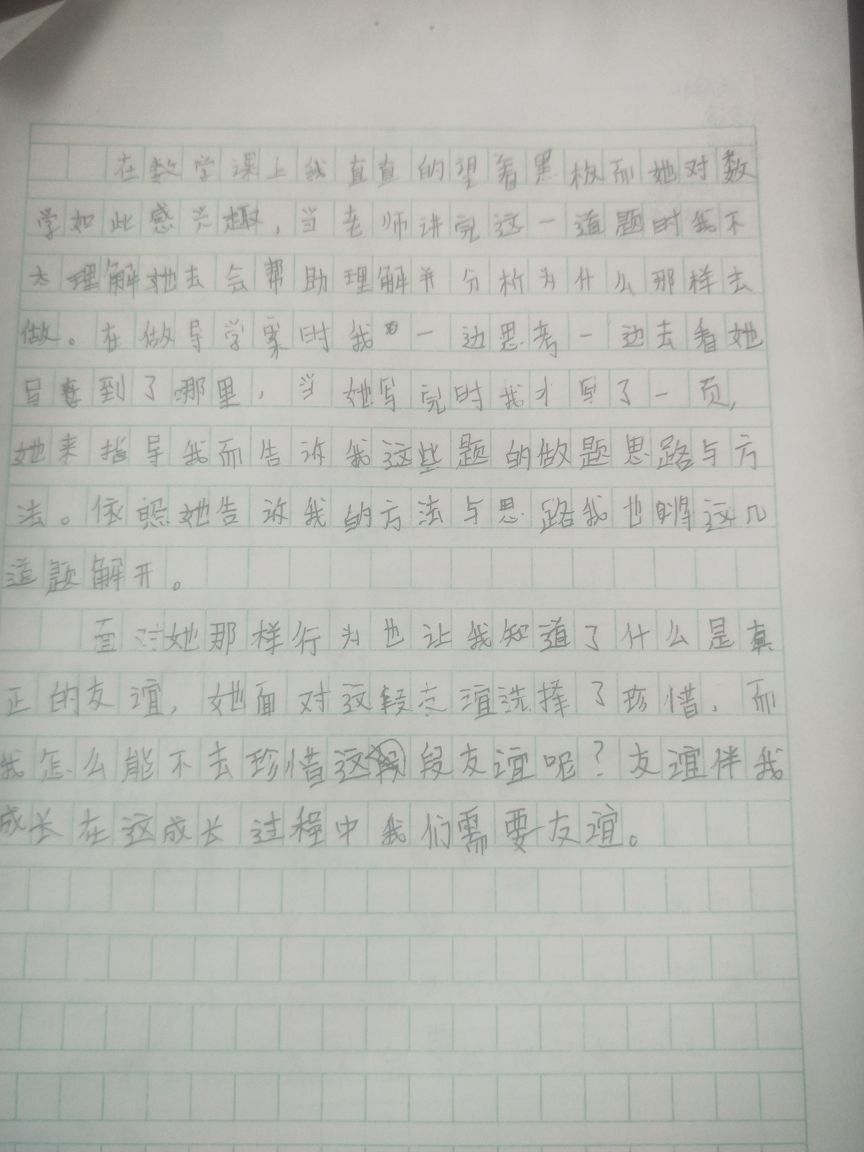 在数学课上我直直的望着黑板而她对数
学如此感兴趣，当老师讲完这一道题时我不
太理解她去会帮助理解并分析为什么那样去
做。在做导学案时我一边思考一边去看她
写到了哪里，当她写完时我才写了一页，
她来指导我而告诉我这些题的做题思路与方
法。依照她告诉我的方法与思路我也将这几
道题解开。
面对她那样行为也让我知道了什么是真
正的友谊，她面对这段友谊选择了珍惜，而
我怎么能不去珍惜这段友谊呢？友谊伴我
成长在这成长过程中我们需要友谊。